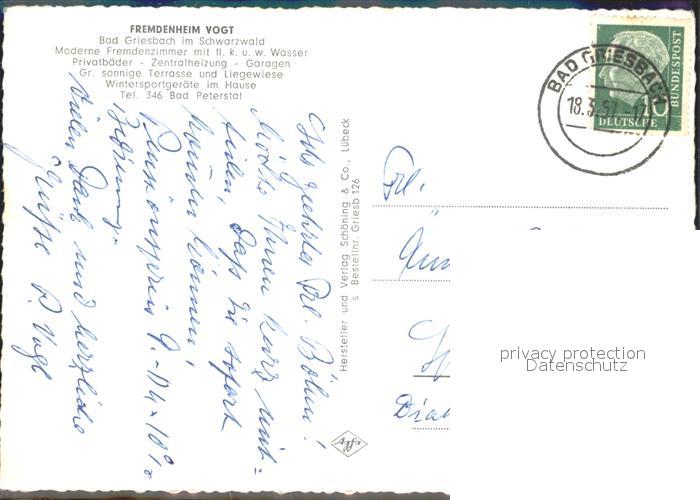 FREMDENHEIM VOGT
Bad Griesbach im Schwarzwald
Moderne Fremdenzimmer mit fl. k. u. w. Wasser
Privatbäder - Zentralheizung - Garagen
Gr. sonnige Terrasse und Liegewiese
Wintersportgeräte im Hause
Tel. 346 Bad Peterstal
Sehr geehrtes Frl. Böhm!
Möchte Ihnen kurz mit-
teilen, daß Sie sofort
kommen können!
Pensionspreis 9.- DM + 10%
Bedienung.
Vielen Dank und herzliche
Grüße P. Vogt
Hersteller und Verlag Schöning & Co., Lübeck
s Bestellnr. Griesb 126
Agfa
BAD GRIESBACH
18.3.57
DEUTSCHE
BUNDESPOST
10
Frl.
privacy protection
Datenschutz